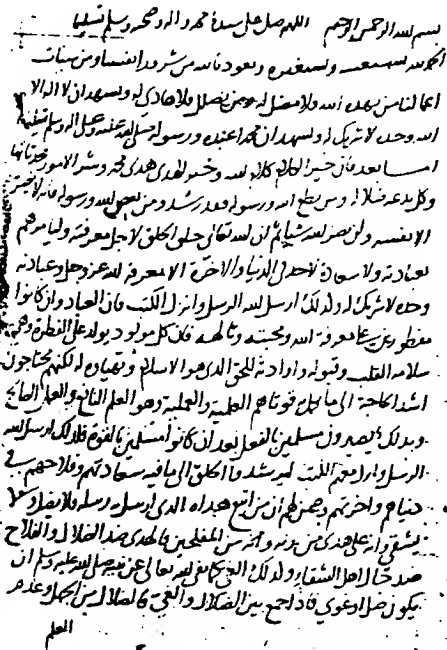 بسم الله الرحمن الرحيم اللهم صل على سيدنا محمد واله وصحبه وسلم تسليما
الحمد لله نستعينه ونستغفره ونعوذ بالله من شرور انفسنا ومن سيات
اعمالنا من يهده الله ولا مضل له ومن يضلل فلا هادي له ونشهد ان لا اله الا
الله وحده لا شريك له ونشهد ان محمدا عبده ورسوله صلى الله عليه وعلى اله وسلم تسليما
اما بعد فان خير الكلام كلام الله وخير الهدى هدى محمد وشر الامور محدثاتها
وكل بدعة ضلالة ومن يطع الله ورسوله فقد رشد ومن يعص الله ورسوله فانه لا يضر
الا نفسه ولن يضر الله شيا ثم ان الله تعالى خلق الخلق لاجل معرفته وليامرهم
بعبادته ولا سعادة لاحد في الدنيا والاخرة الا بمعرفة الله عز وجل وعبادته
وحده لا شريك له ولذلك ارسل الله الرسل وانزل الكتب فان العباد وان كانوا
مفطورين على معرفة الله ومحبته وتالهه فان كل مولود يولد على الفطرة وهي
سلامة القلب وقبوله وارادته للحق الذي هو الاسلام وتهياوه له لكنهم محتاجون
اشد الحاجة الى ما يكمل قوتاهم العلمية والعملية وهو العلم النافع والعمل الصالح
وبذلك يصيرون مسلمين بالفعل بعد ان كانوا مسلمين بالقوة فلذلك ارسل الله
الرسل وانزل معهم الكتب ليرشدوا الخلق الى ما فيه سعادتهم وفلاحهم في
دنياهم واخرتهم وضمن لهم ان من اتبع هداه الذي ارسل به رسله فلا يضل ولا
يشقى وانه على هدى من ربه وانه من المفلحين فالهدى ضد الضلال والفلاح
ضد حال اهل الشقاء ولذلك الغي كما نفى الله تعالى عن نبيه صلى الله عليه وسلم ان
يكون ضل او غوى فاذا جمع بين الضلال والغي فالضلال من الجهل وعدم
العلم